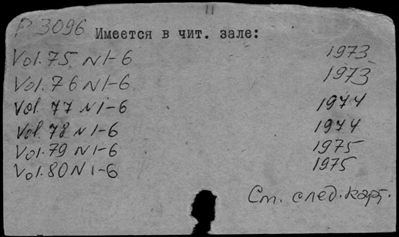 P 3096 Имеется в чит. зале:
Vol. 75 N 1-6 1973
Vol. 76 N 1-6 1973
Vol 77 N 1-6 1974
Vol. 78 N 1-6 1974
Vol. 79 N 1-6 1975
Vol. 80 N 1-6 1975
См. след. карт.